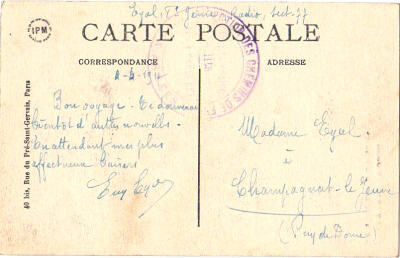 Eyel, 8e Génie Radio, Sect. 77
IPM
CARTE POSTALE
CORRESPONDANCE
ADRESSE
Bon voyage. Te donnerai
bientôt d'autres nouvelles.
En attendant mes plus
affectueux baisers
Guy Eyel
Madame Eyel
à
Champagnat-le-Jeune
(Puy de Dôme)
DES CHEMINS DE
40 bis, Rue du Pré-Saint-Gervais, Paris